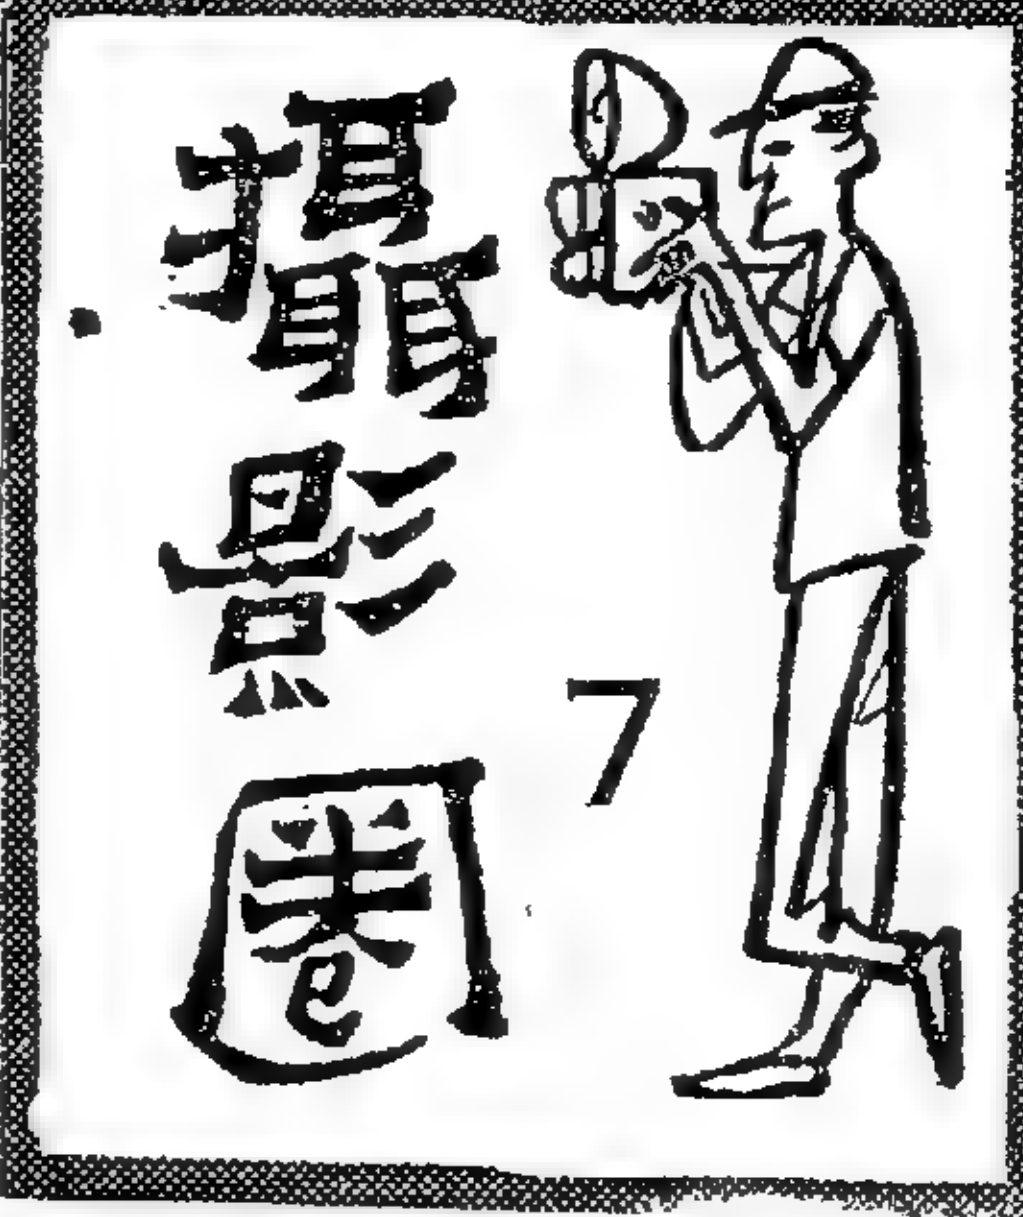 攝影圈
7